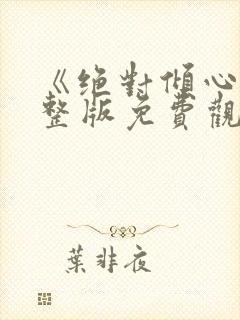 《絶對傾心
整版免費觀
葉非夜